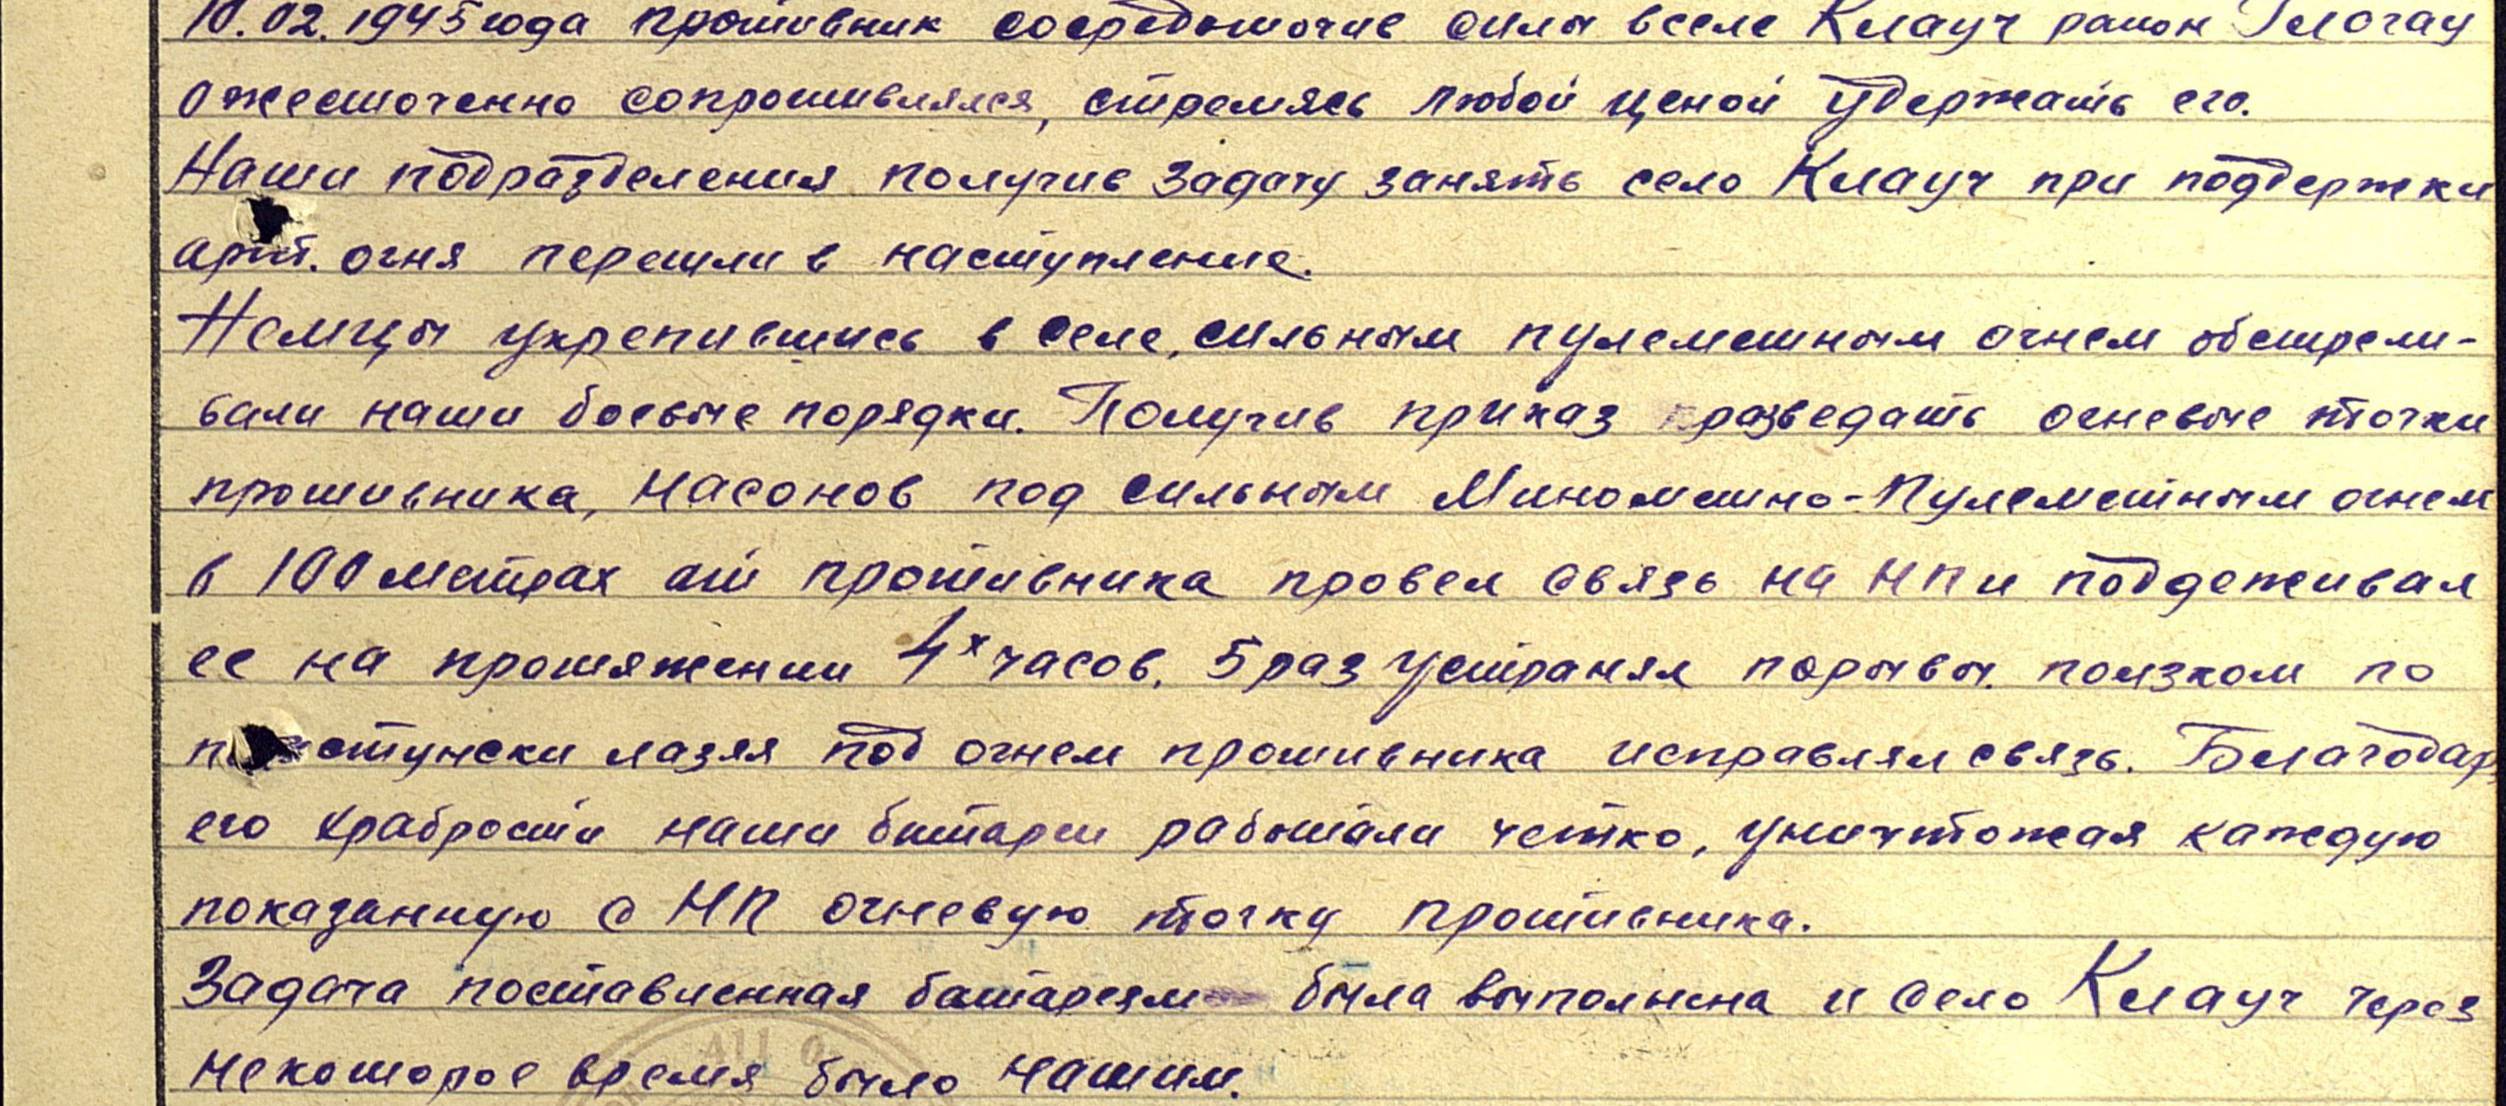 10.02.1945 года противник сосредоточив силы в селе Клауч район Глогау
ожесточенно сопротивлялся, стремясь любой ценой удержать его.
Наши подразделения получив задачу занять село Клауч при поддержки
арт. огня перешли в наступление.
Немцы укрепившись в селе, сильным пулеметным огнем обстрели-
вали наши боевые порядки. Получив приказ разведать огневые точки
противника, Насонов под сильным Минометно-Пулеметным огнем
в 100 метрах от противника провел связь на НП и поддеживал
ее на протяжении 4х часов. 5 раз устранял порывы. ползком по
лазяя под огнем противника исправлял связь. Благодар
его храбрости наши битареи работали четко, уничтожая каждую
показанную с НП огневую точку противника.
Задача поставленная батареям была выполнена и село Клауч через
некоторое время было нашим.